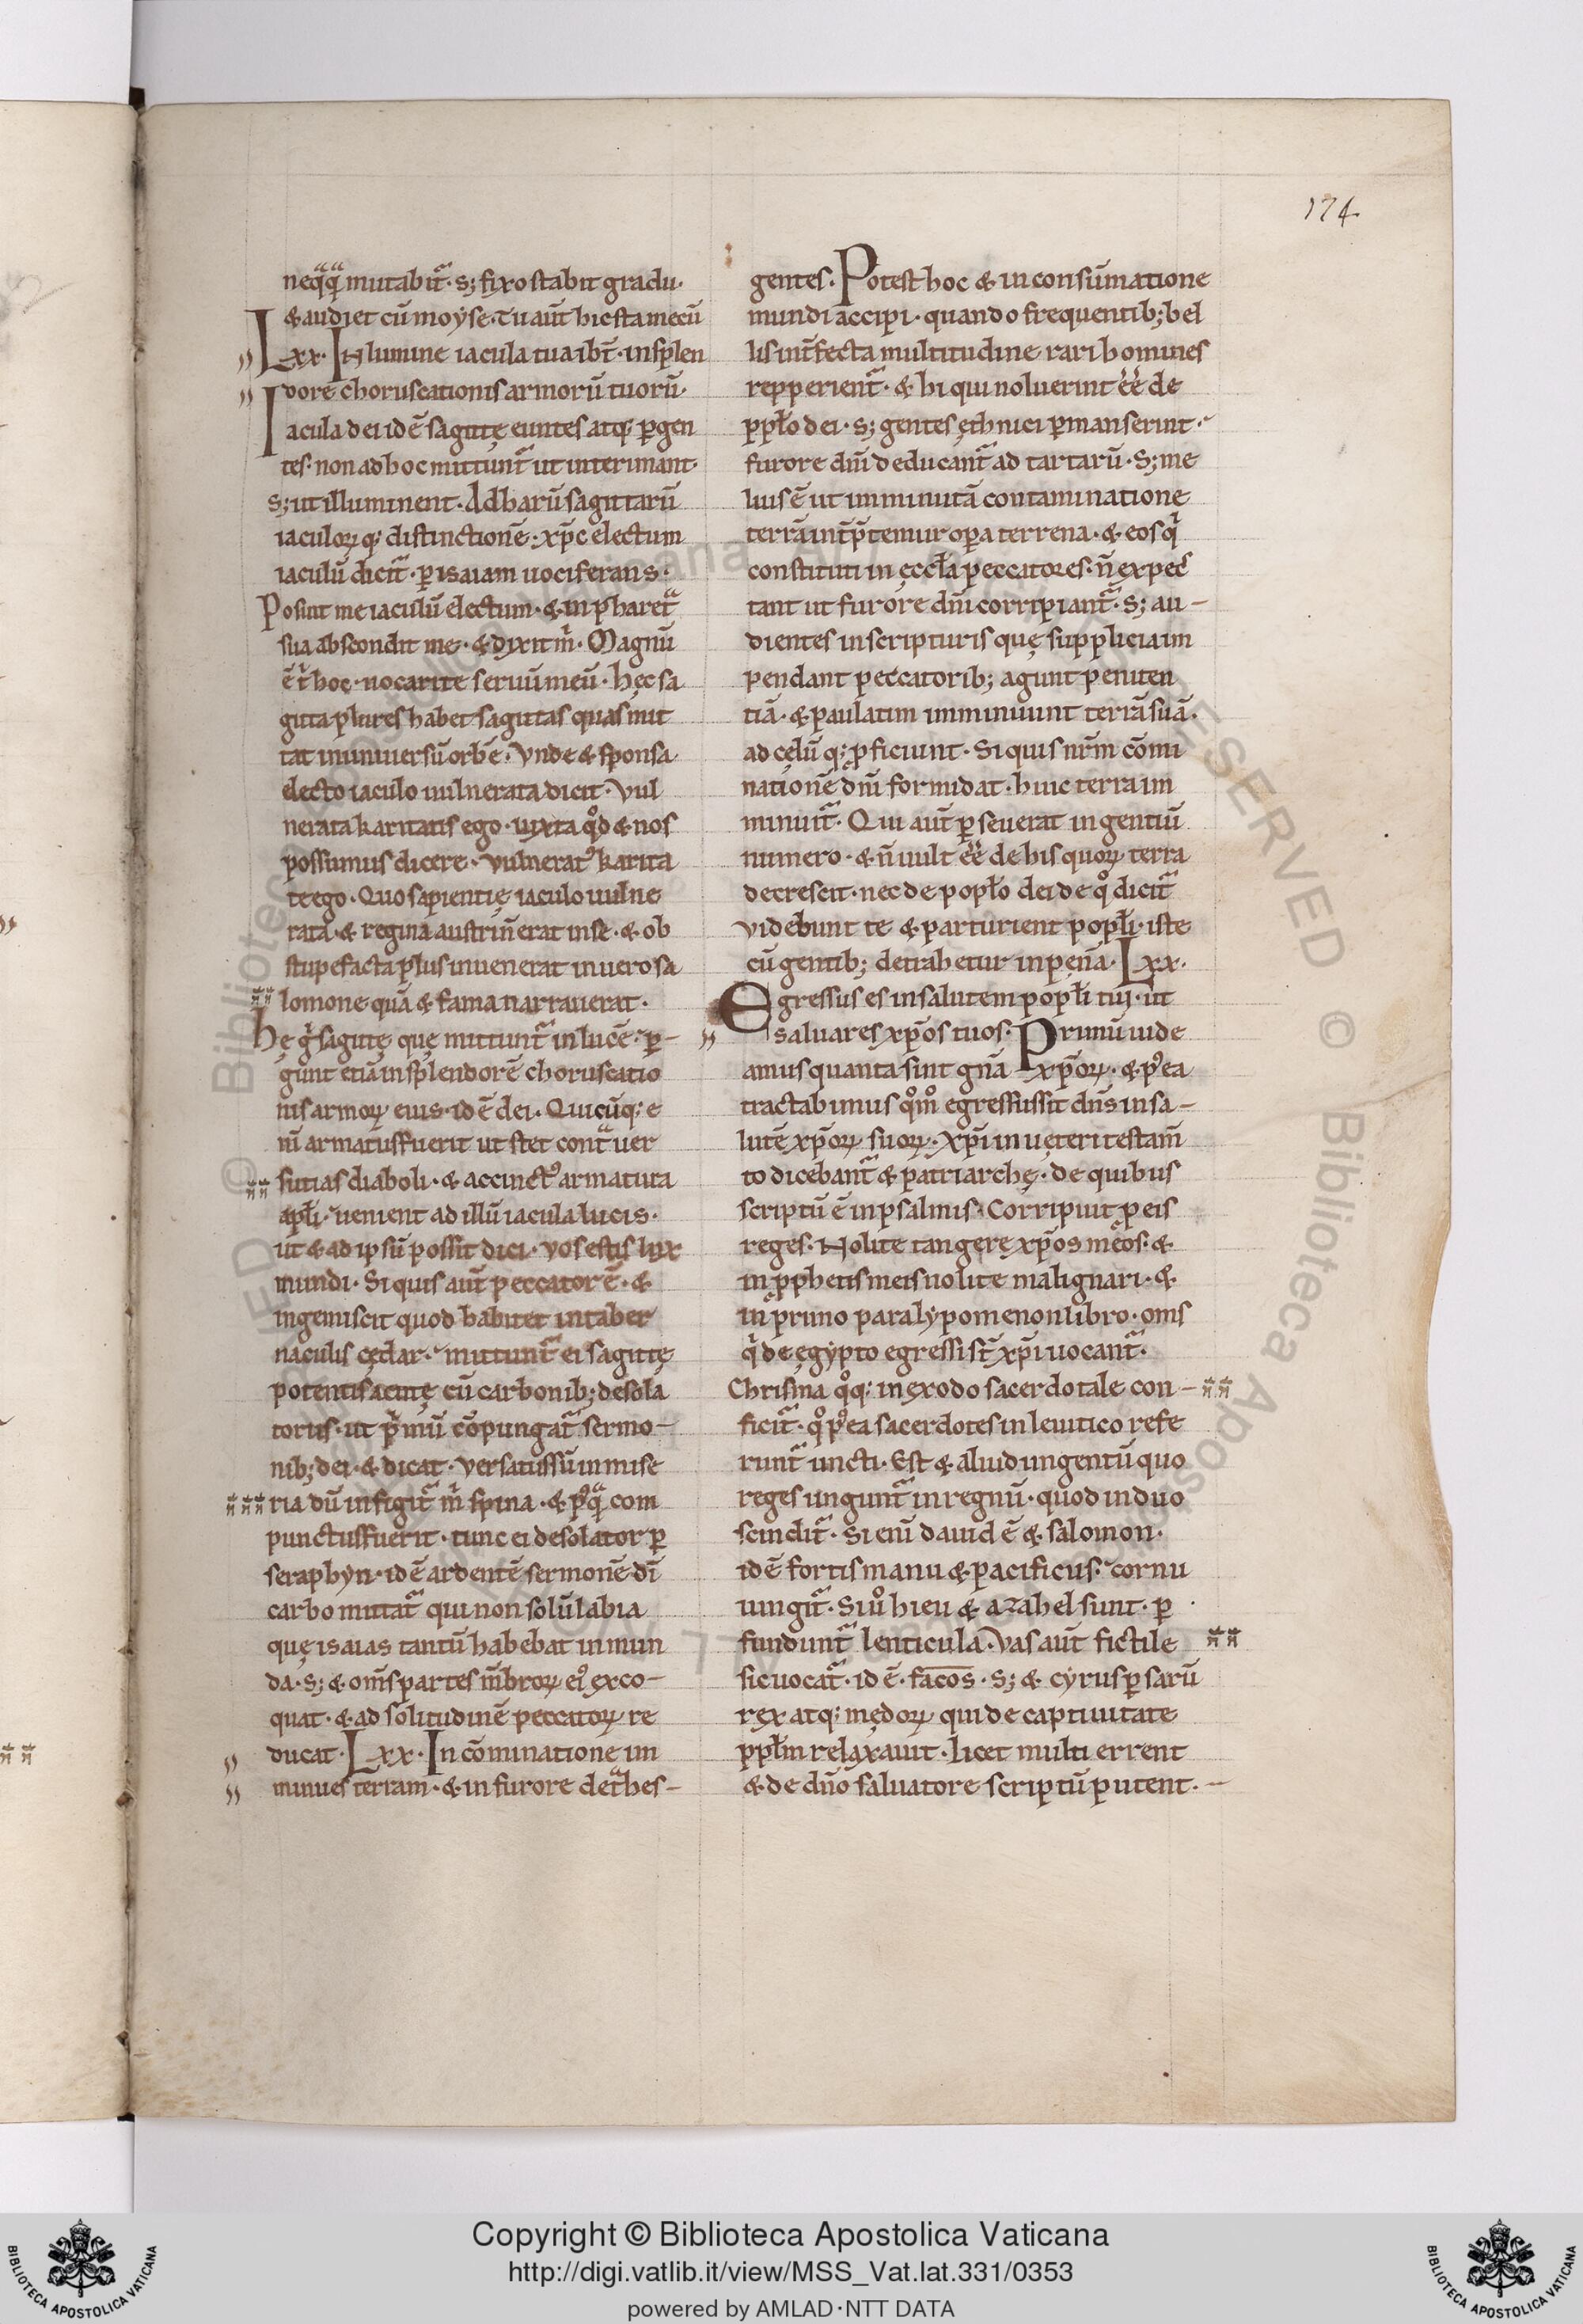 174
neq̈q̈ mutabit᷑· s; fixo stabit gradu·
& audiet cū moyse· Tu aūt hic sta mecū
Lxx· IN lumine iacula tua ibt̄· in splen
dore choruscationis armorū tuorū·
Iacula dei id ē sagittę euntes atq; ꝑgen
tes· non ad hoc mittunt᷑ ut interimant·
s; ut illuminent· Ad harū sagittarū
iaculoꝝ q; distinctionē· xp̄c electum
iaculū dicit᷑· ꝑ isaiam uociferans·
Posuit me iaculū electum· & in pharet᷑
sua abscondit me· & dixit m̄· Magnū
ē t̄ hoc· uocarite seruū meū· hęc sa
gitta plures habet sagittas quas mit
tat in uniuersū orbē· Vnde & sponsa
electo iaculo uulnerata dicit· Vul
nerata karitatis ego· iuxta qd̊ & nos
possumus dicere· Vulneratꝰ karita
te ego· Quo sapientię iaculo uulne
rata· & regina austri n̄ erat in se· & ob
stupefacta plus inuenerat in uero sa
lomone quā & fama narrauerat·
hę g̊ sagittę quę mittunt᷑ in lucē· ꝑ–
gunt etiā in splendorē choruscatio
nis armoꝝ eius· id ē dei· Quicūq; e
nī armatus fuerit ut stet cont᷑ uer
sutias diaboli· & accinctꝰ armatura
apłi· uenient ad illū iacula lucis·
ut & ad ipsū possit dici· vos estis lux
mundi· Si quis aūt peccator ē· &
ingemiscit quod habitet in taber
naculis cędar· mittunt᷑ ei sagittę
potentis acutę cū carbonib; desola
toriis· ut p̄mū cōpungat᷑ sermo–
nib; dei· & dicat· versatus sū in mise
ria dū infigit᷑ m̄ spina· & pꝰq̈ com
punctus fuerit· tunc ei desolator ꝑ
seraphyn· id ē ardentē sermonē dī
carbo mittat᷑ qui non solū labia
quę isaias tantū habebat inmun
da· s; & om̄s partes m̄broꝝ eiꝰ exco–
quat· & ad solitudinē peccatoꝝ re
ducat· Lxx· In cōminatione im
minues terram· & in furore det᷑hes–
gentes· Potest hoc & in consūmatione
mundi accipi· quando frequentib; bel
lis int̄fecta multitudine rari homines
repperient᷑· & hi qui noluerint ēē de
ppło dei· s; gentes ęthnici ꝑmanserint·
furore dn̄i deducant᷑ ad tartarū· S; me
lius ē ut imminutā contaminatione
terrā int̄p̄temur opera terrena· & eos q̇
constituti in ęccła peccatores· n̄ expec
tant ut furore dn̄i corripiant᷑· s; au–
dientes in scripturis quę supplicia im
pendant peccatorib; agunt peniten
tiā· & paulatim imminuunt terrā suā·
ad cęlū q; ꝓficiunt· Si quis nr̄m cōmi
nationē dn̄i formidat· huic terra im
minuit᷑· Qui aūt ꝑseuerat in gentiū
numero· & n̄ uult ēē de his quoꝝ terra
decrescit· nec de popło dei de q̊ dicit᷑
videbunt te & parturient popłi· iste
cū gentib; detrahetur in pęna· Lxx·
Egressus es in salutem popłi tui· ut
saluares xp̄os tuos· Primū uide
amus quanta sint gn̄a xp̄oꝝ· & pꝰea
tractabimus qm̊ egressus sit dn̄s in sa–
lutē xp̄oꝝ suoꝝ· Xp̄i in uęteri testam̄
to dicebant᷑ & patriarchę· de quibus
scriptū ē in psalmis· Corripiuit ꝓ eis
reges· Nolite tangere xp̄os meos· &
in ꝓphetis meis nolite malignari· &
in primo paralypomenon libro· om̄s
q̇ de ęgypto egressi st̄ xp̄i uocant᷑·
Chrisma q̊q; in exodo sacerdotale con–
ficit᷑· q̊ pꝰea sacerdotes in leuitico refe
runt᷑ uncti· Est & aliud ungentū quo
reges ungunt᷑ in regnū· quod in duo
scindit᷑· Si enī dauid ē & salomon·
id ē fortis manu & pacificus· cornu
ungit᷑· Si ů hieu & azahel sunt· ꝑ
fundunt᷑ lenticula· Vas aūt fictile
sic uocat᷑· id ē· facos· S; & cyrus ꝑsarū
rex atq; mędoꝝ qui de captiuitate
ppłm relaxauit· Licet multi errent
& de dn̄o saluatore scriptū putent·–
Copyright © Biblioteca Apostolica Vaticana
http://digi.vatlib.it/view/MSS_Vat.lat.331/0353
powered by AMLAD·NTT DATA
BIBLIOTECA APOSTOLICA VATICANA
BIBLIOTECA APOSTOLICA VATICANA